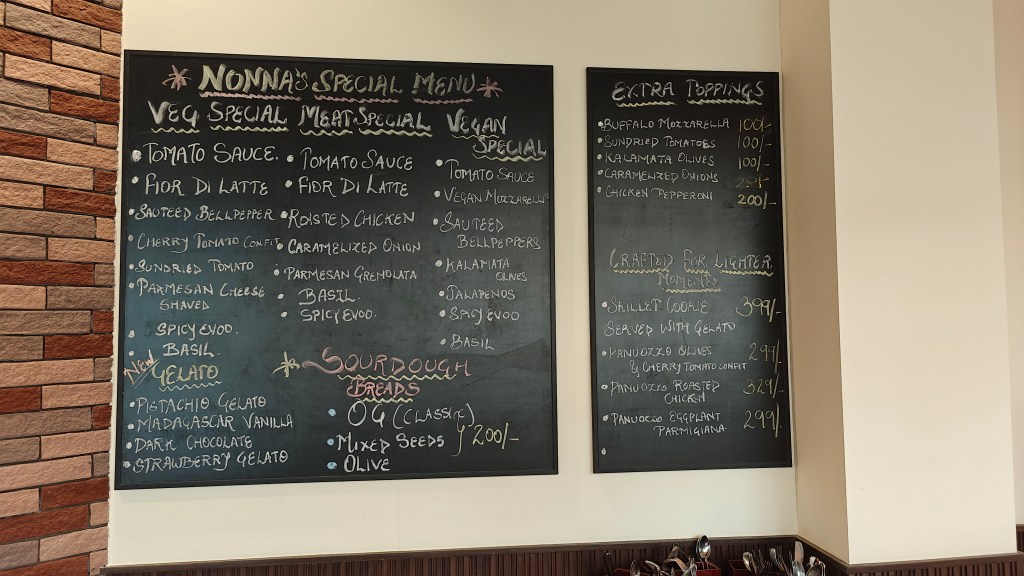 NONNA'S SPECIAL MENU
VEG SPECIAL
TOMATO SAUCE.
FIOR DI LATTE
SAUTEED BELLPEPPER
CHERRY TOMATO CONFIT
SUNDRIED TOMATO
PARMESAN CHEESE
SHAVED
SPICY EVOO.
BASIL.
MEAT SPECIAL
TOMATO SAUCE
FIOR DI LATTE
ROASTED CHICKEN
CARAMELIZED ONION
PARMESAN GREMOLATA
BASIL.
SPICY EVOO.
VEGAN
SPECIAL
TOMATO SAUCE
VEGAN MOZZARELLA
SAUTEED
BELLPEPPERS
KALAMATA
OLIVES
JALAPENOS
SPICY EVOO
BASIL
NEW
GELATO
PISTACHIO GELATO
MADAGASCAR VANILLA
DARK CHOCOLATE
STRAWBERRY GELATO
SOURDOUGH
BREADS
OG (CLASSIC)
MIXED SEEDS } 200/-
OLIVE
EXTRA TOPPINGS
BUFFALO MOZZARELLA 100/-
SUNDRIED TOMATOES 100/-
KALAMATA OLIVES 100/-
CARAMELIZED ONIONS
CHICKEN PEPPERONI 200/-
CRAFTED FOR LIGHTER
MOMENTS
SKILLET COOKIE 399/-
SERVED WITH GELATO
PANUOZZO OLIVES 299/-
& CHERRY TOMATO CONFIT
PANUOZZO ROASTED 329/-
CHICKEN
PANUOZZO EGGPLANT 299/-
PARMIGIANA